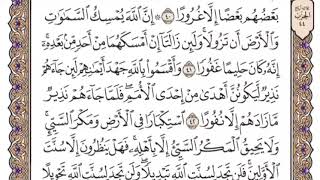 بَعۡضُهُم بَعۡضًا إِلَّا غُرُورًا ٤٠ ۞ إِنَّ ٱللَّهَ يُمۡسِكُ ٱلسَّمَٰوَٰتِ
وَٱلۡأَرۡضَ أَن تَزُولَاۚ وَلَئِن زَالَتَآ إِنۡ أَمۡسَكَهُمَا مِنۡ أَحَدٖ مِّنۢ بَعۡدِهِۦٓۚ
إِنَّهُۥ كَانَ حَلِيمًا غَفُورٗا ٤١ وَأَقۡسَمُواْ بِٱللَّهِ جَهۡدَ أَيۡمَٰنِهِمۡ لَئِن جَآءَهُمۡ
نَذِيرٞ لَّيَكُونُنَّ أَهۡدَىٰ مِنۡ إِحۡدَى ٱلۡأُمَمِۖ فَلَمَّا جَآءَهُمۡ نَذِيرٞ
مَّا زَادَهُمۡ إِلَّا نُفُورًا ٤٢ ٱسۡتِكۡبَارٗا فِي ٱلۡأَرۡضِ وَمَكۡرَ ٱلسَّيِّيِٕۚ
وَلَا يَحِيقُ ٱلۡمَكۡرُ ٱلسَّيِّئُ إِلَّا بِأَهۡلِهِۦۚ فَهَلۡ يَنظُرُونَ إِلَّا سُنَّتَ
ٱلۡأَوَّلِينَۚ فَلَن تَجِدَ لِسُنَّتِ ٱللَّهِ تَبۡدِيلٗاۖ وَلَن تَجِدَ لِسُنَّتِ ٱللَّهِ تَحۡوِيلًا